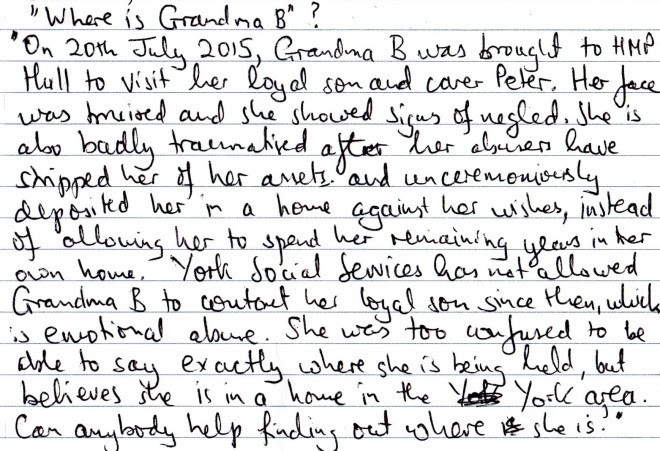 "Where is Grandma B" ?
"On 20th July 2015, Grandma B was brought to HMP
Hull to visit her loyal son and carer Peter. Her face
was bruised and she showed signs of neglect. She is
also badly traumatised after her abusers have
stripped her of her assets. and unceremoniously
deposited her in a home against her wishes, instead
of allowing her to spend her remaining years in her
own home. York Social Services has not allowed
Grandma B to contact her loyal son since then, which
is emotional abuse. She was too confused to be
able to say exactly where she is being held, but
believes she is in a home in the York area.
Can anybody help finding out where she is."